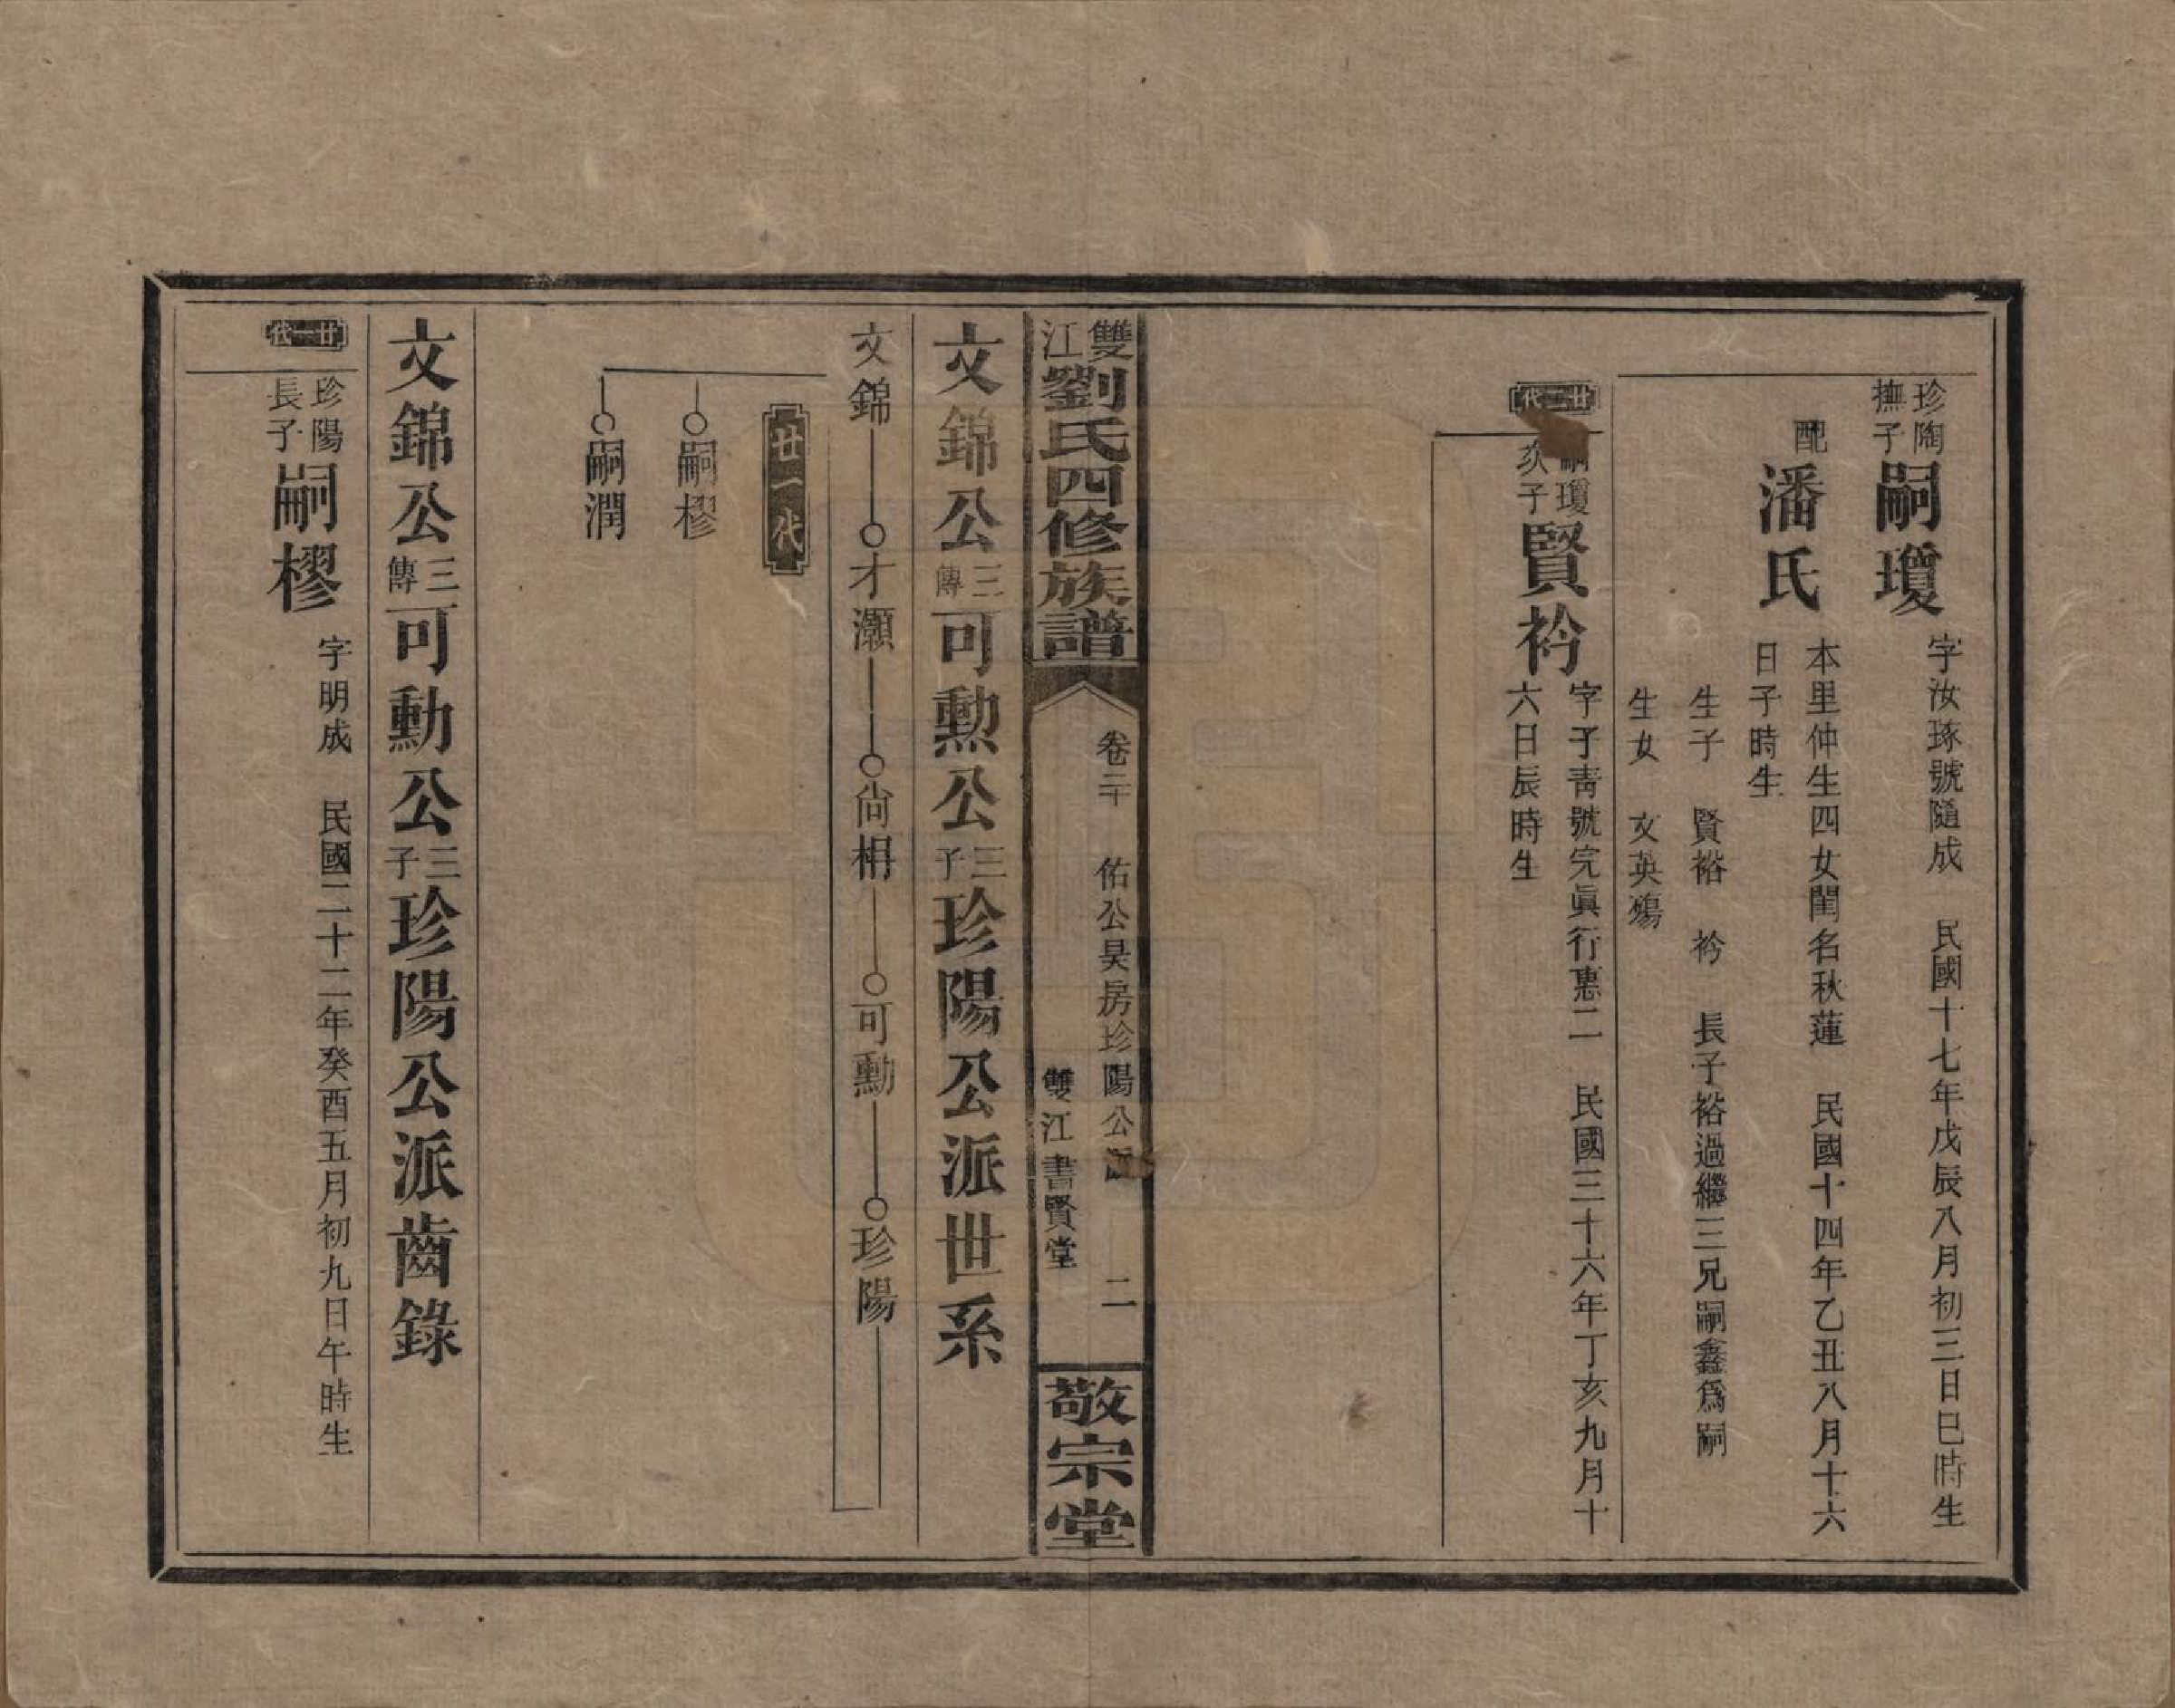 珍陶撫子嗣瓊 字汝琢號隨成 民國十七年戊辰八月初三日巳時生
配潘氏 本里仲生四女閨名秋蓮 民國十四年乙丑八月十六
日子時生
生子 賢裕 衿 長子裕過繼三兄嗣鑫爲嗣
生女 文英殤
廿二代
嗣瓊次子賢衿 字子靑號完眞行惠二 民國三十六年丁亥九月十
六日辰時生
雙江劉氏四修族譜 卷二十 佑公昊房珍陽公派 二 雙江書賢堂 敬宗堂
文錦公三傳可勲公三子珍陽公派世系
文錦 才灝 尙梋 可勳 珍陽
廿一代
嗣樛
嗣潤
文錦公三傳可勳公三子珍陽公派齒錄
廿一代
珍陽長子嗣樛 字明成 民國二十二年癸酉五月初九日午時生